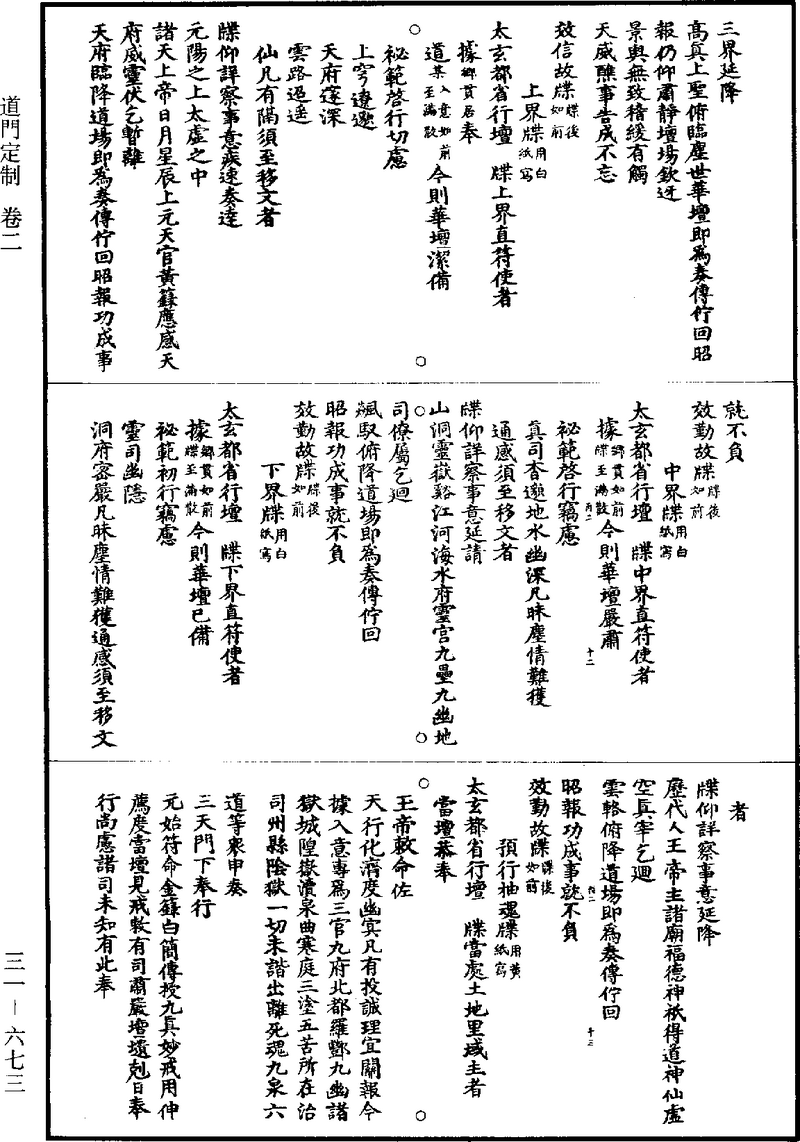 三界延降
高真上聖俯臨塵世華壇即為奏傳佇回昭
報仍仰肅靜壇場欽迓
景輿無致稽緩有觸
天威醮事告成不忘
效信故牒牒後如前
上界牒用白紙寫
太玄都省行壇　牒上界直符使者
據鄉貫居奉
道某入意如前至滿散今則華壇潔備
祕範啓行切慮
上穹遼邈
天府邃深
雲路迢遙
仙凡有隔須至移文者
牒仰詳察事意疾速奏達
元陽之上太虛之中
諸天上帝日月星辰上元天官黃籙應感天
府威靈伏乞暫離
天府臨降道場即為奏傳佇回昭報功成事
就不負
效勤故牒牒後如前
中界牒用白紙寫
太玄都省行壇　牒中界直符使者
據鄉貫如前牒至滿散今則華壇嚴肅
十二
祕範啓行竊慮
真司杳邈地水幽深凡昧塵情難獲
通感須至移文者
牒仰詳察事意延請
山洞靈嶽谿江河海水府靈宮九壘九幽地
司僚屬乞迴
飆馭俯降道場即為奏傳佇回
昭報功成事就不負
效勤故牒牒後如前
下界牒用白紙寫
太玄都省行壇　牒下界直符使者
據鄉貫如前牒至滿散今則華壇已備
祕範初行竊慮
靈司幽隱
洞府密嚴凡昧塵情難獲通感須至移文
者
牒仰詳察事意延降
歷代人王帝主諸廟福德神祇得道神仙虛
空真宰乞迴
雲輅俯降道場即為奏傳佇回
十三
昭報功成事就不負
效勤故牒牒後如前
預行抽魂牒用黃紙寫
太玄都省行壇　牒當處土地里域主者
當壇恭奉
王帝敕命佐
天行化濟度幽冥凡有投誠理宜關報今
據入意專為三官九府北都羅酆九幽諸
獄城隍嶽瀆泉曲寒庭三塗五苦所在治
司州縣陰獄一切未諧出離死魂九泉六
道等衆申奏
三天門下奉行
元始符命金籙白簡傳授九真妙戒用伸
薦度當壇見戒敕有司肅嚴壇墠剋日奉
行尚慮諸司未知有此奉
道門定制　卷二
三一－六七三